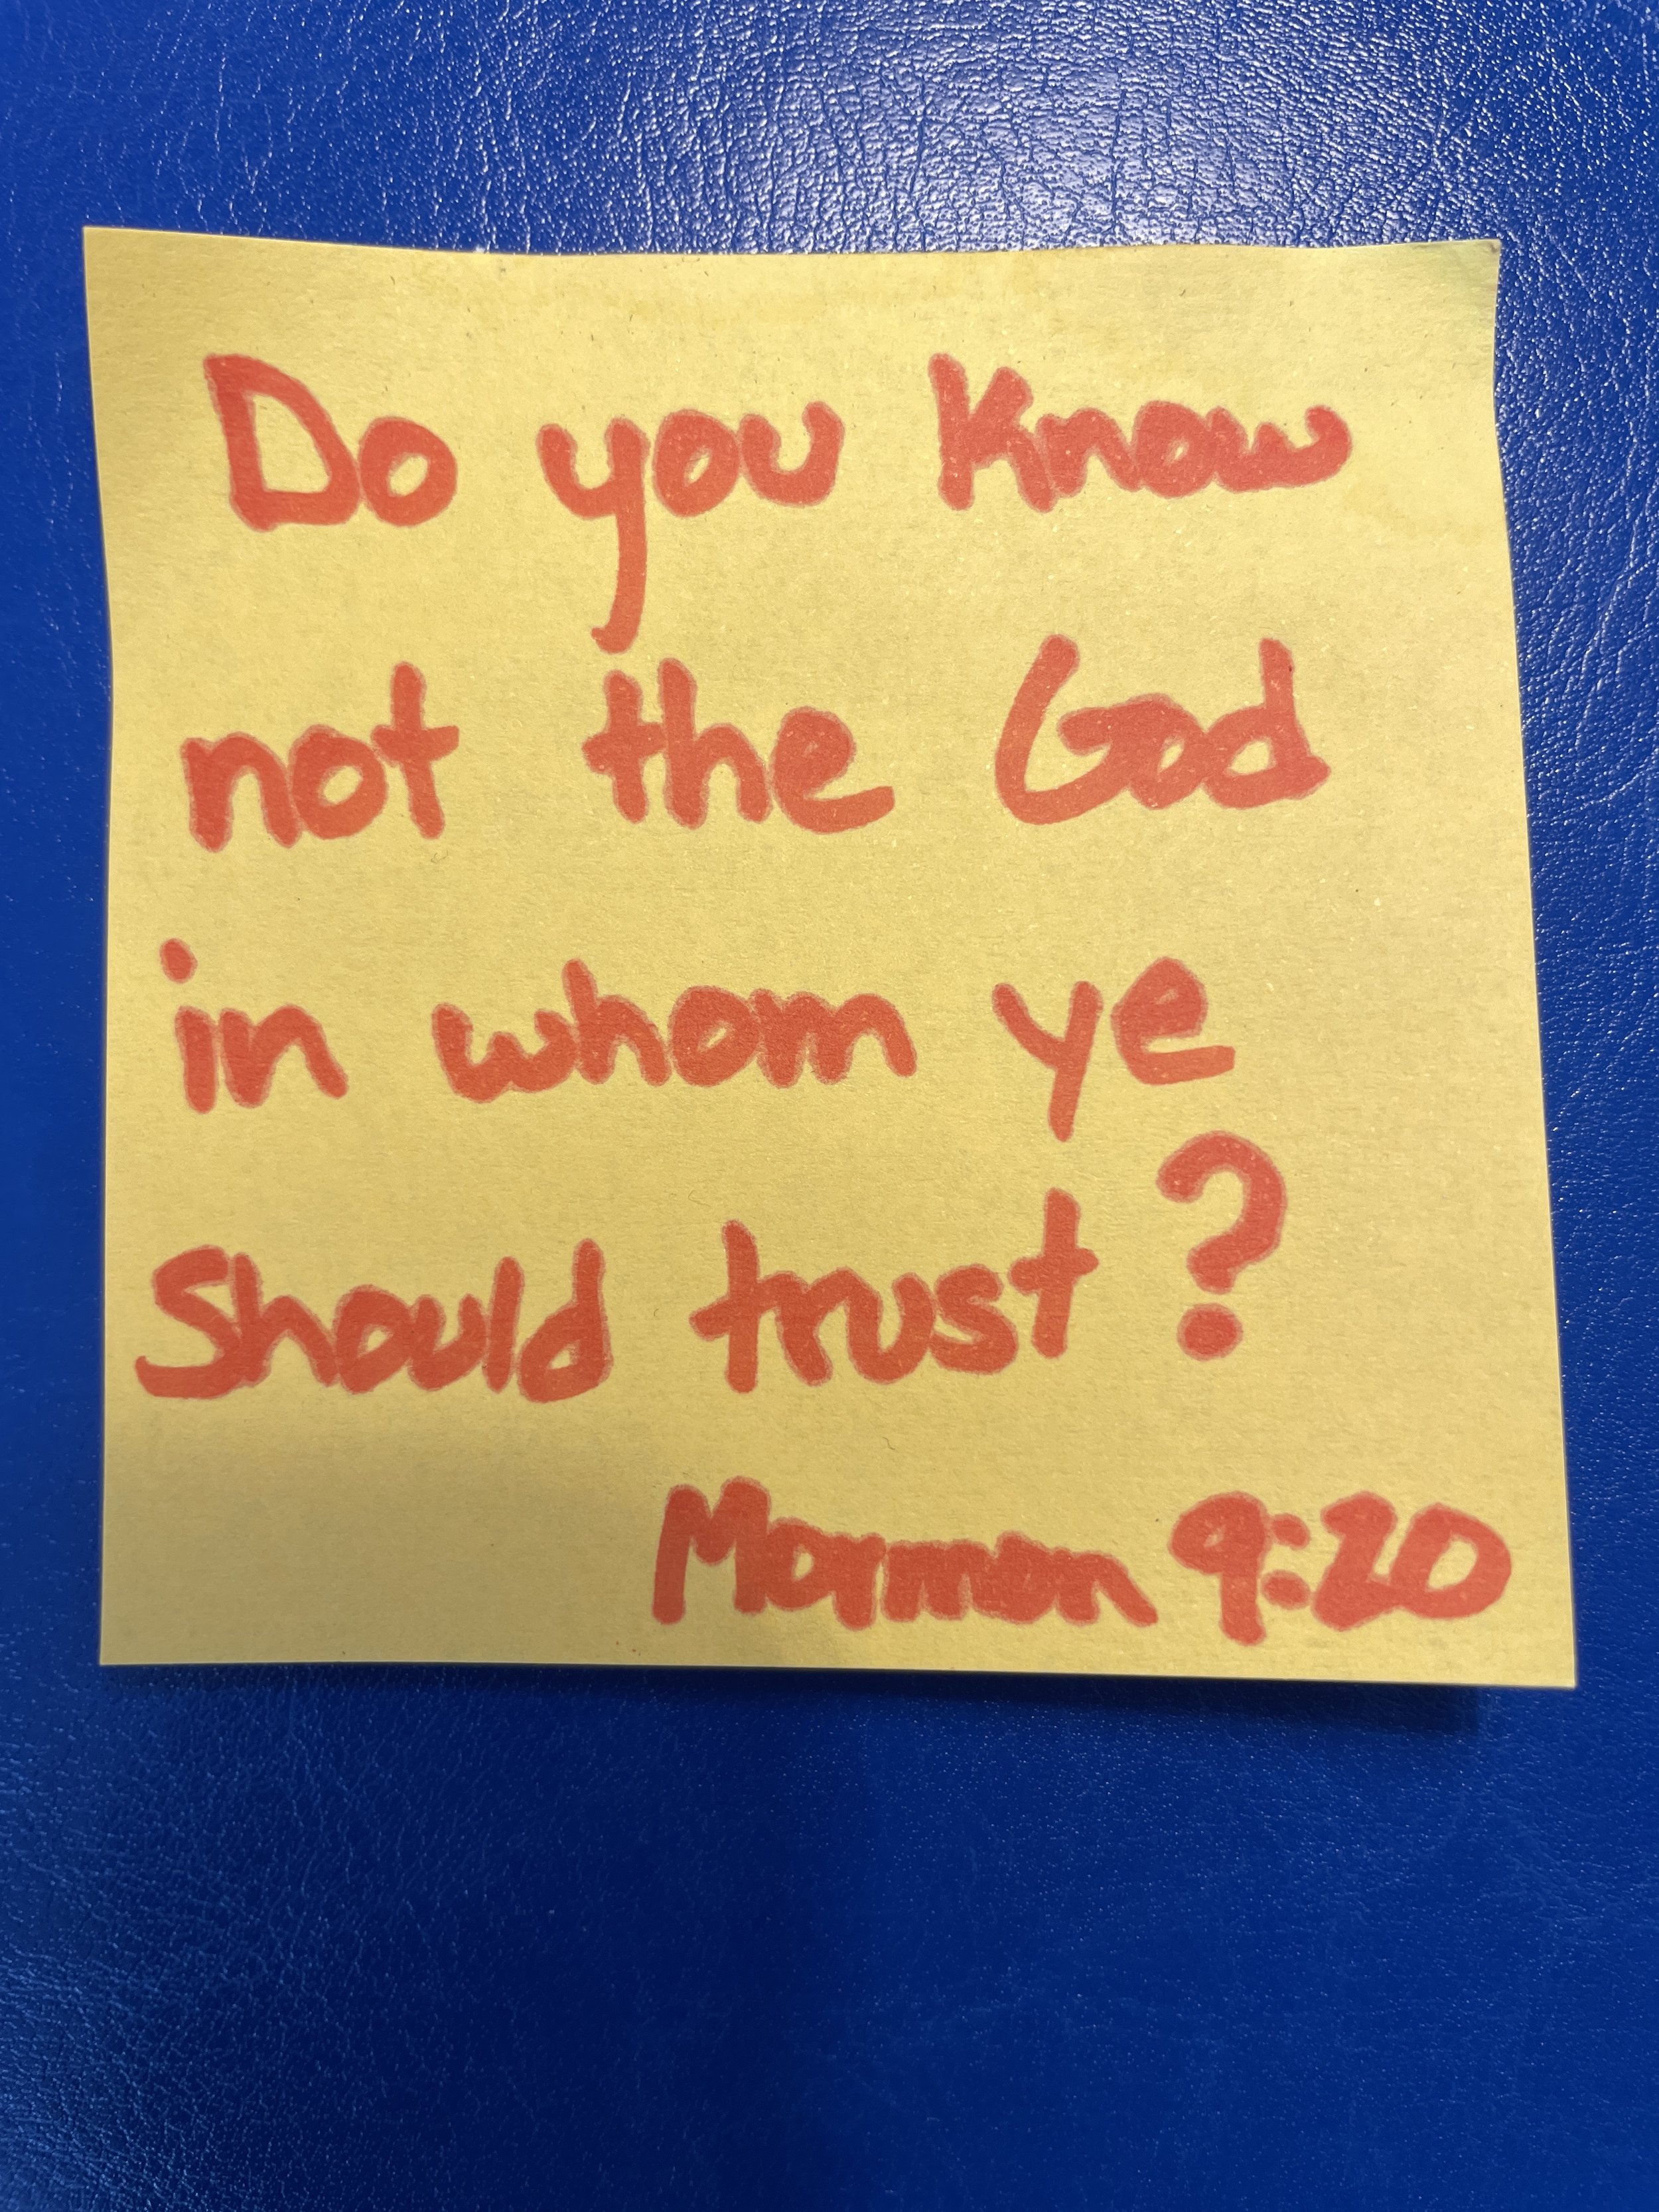 Do you know
not the God
in whom ye
Should trust?
Mormon 9:20